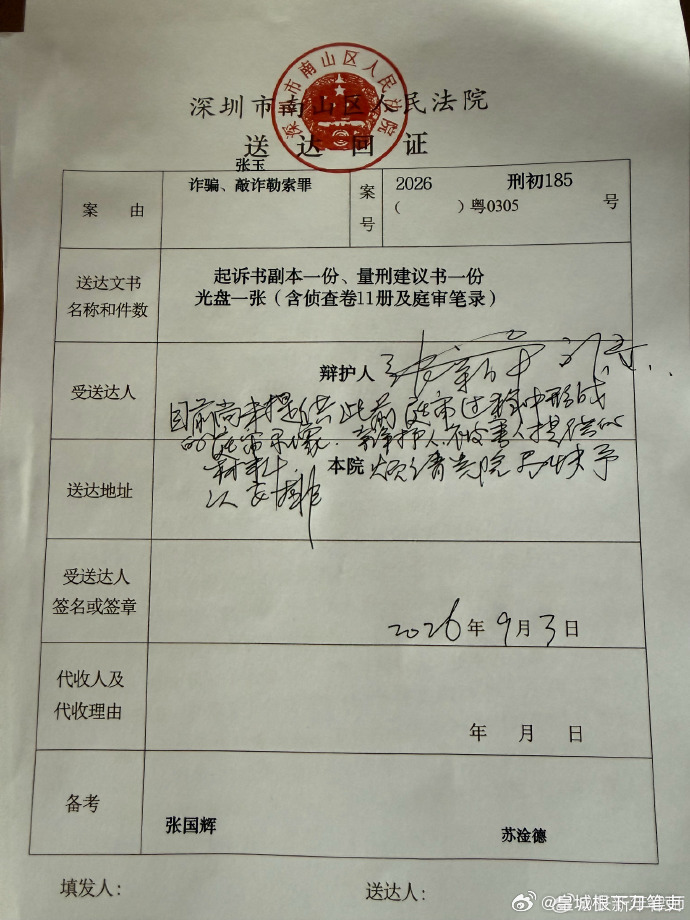 深圳市南山区人民法院
深圳市南山区人民法院
送达回证
案由
张玉
诈骗、敲诈勒索罪
案号
2026 刑初185
( )粤0305 号
送达文书
名称和件数
起诉书副本一份、量刑建议书一份
光盘一张(含侦查卷11册及庭审笔录)
受送达人
辩护人
目前尚未提供此前庭审过程中形成
的庭审 辩护人 被害人提供的
材料.
送达地址
本院
烦请贵院尽快予
以安排
受送达人
签名或签章
2026年9月3日
代收人及
代收理由
年 月 日
备考
张国辉
苏淦德
填发人:
送达人:
@皇城根下刀笔吏